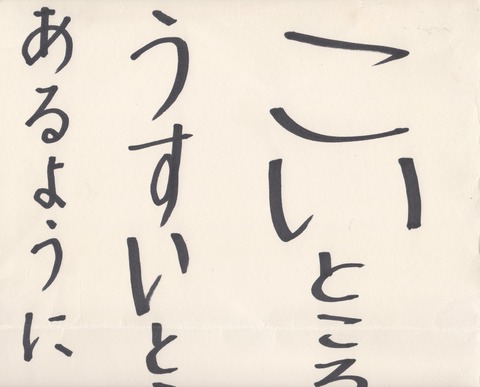 こいところ
うすいとこ
あるように